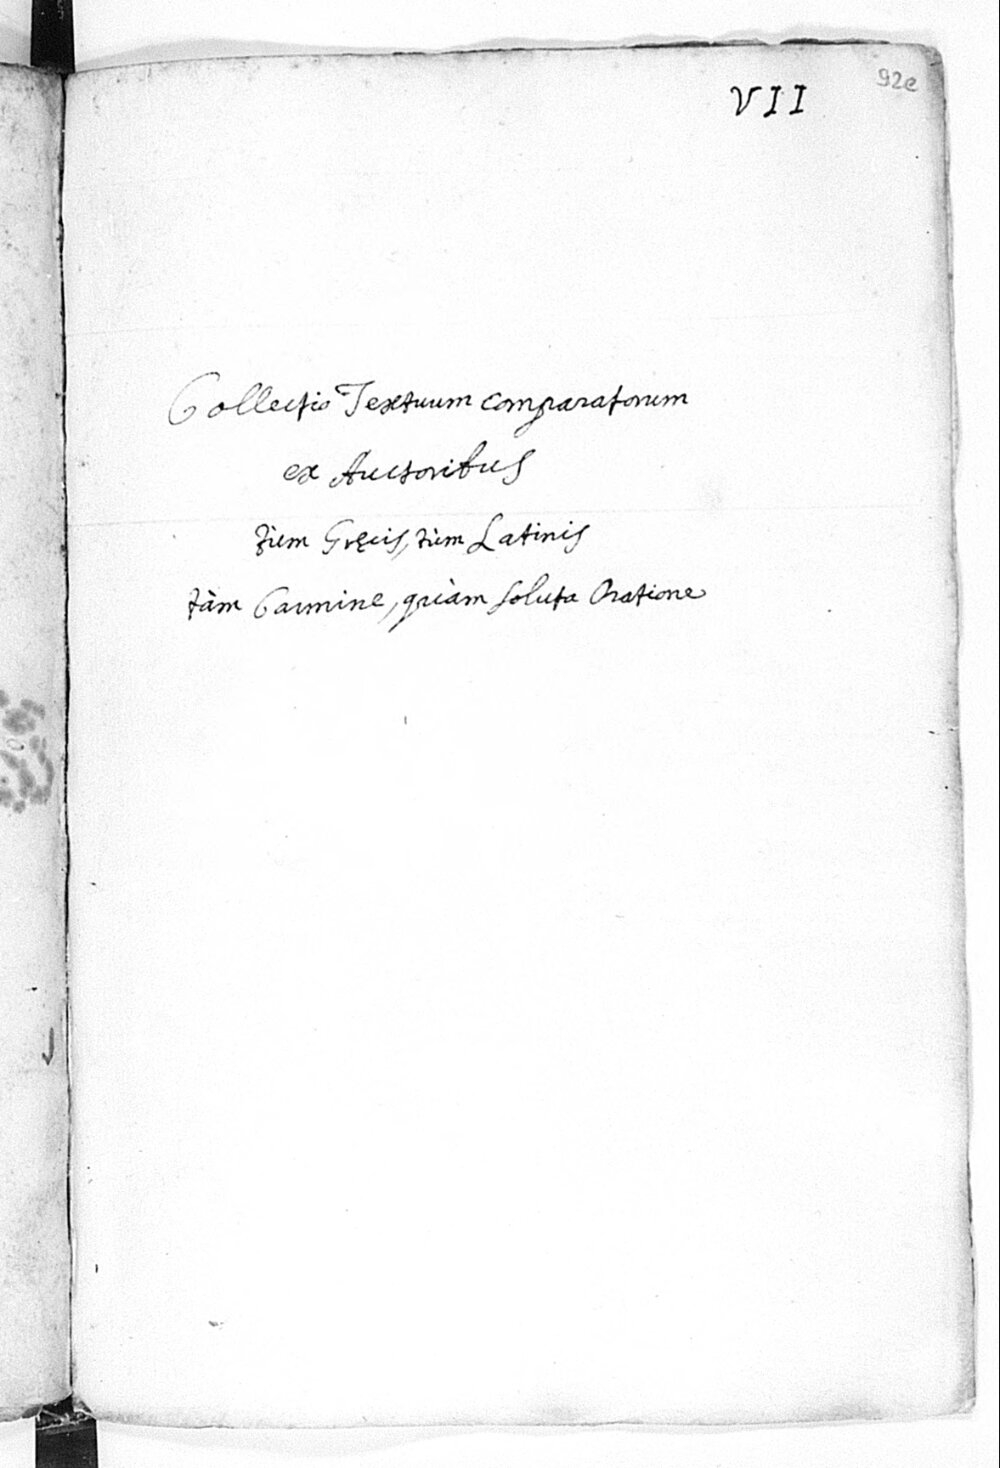 92e
VII
Collectio Textuum comparatorum
ex Auctoribus
tùm Gręcis, tùm Latinis
tàm Carmine, quàm soluta Oratione